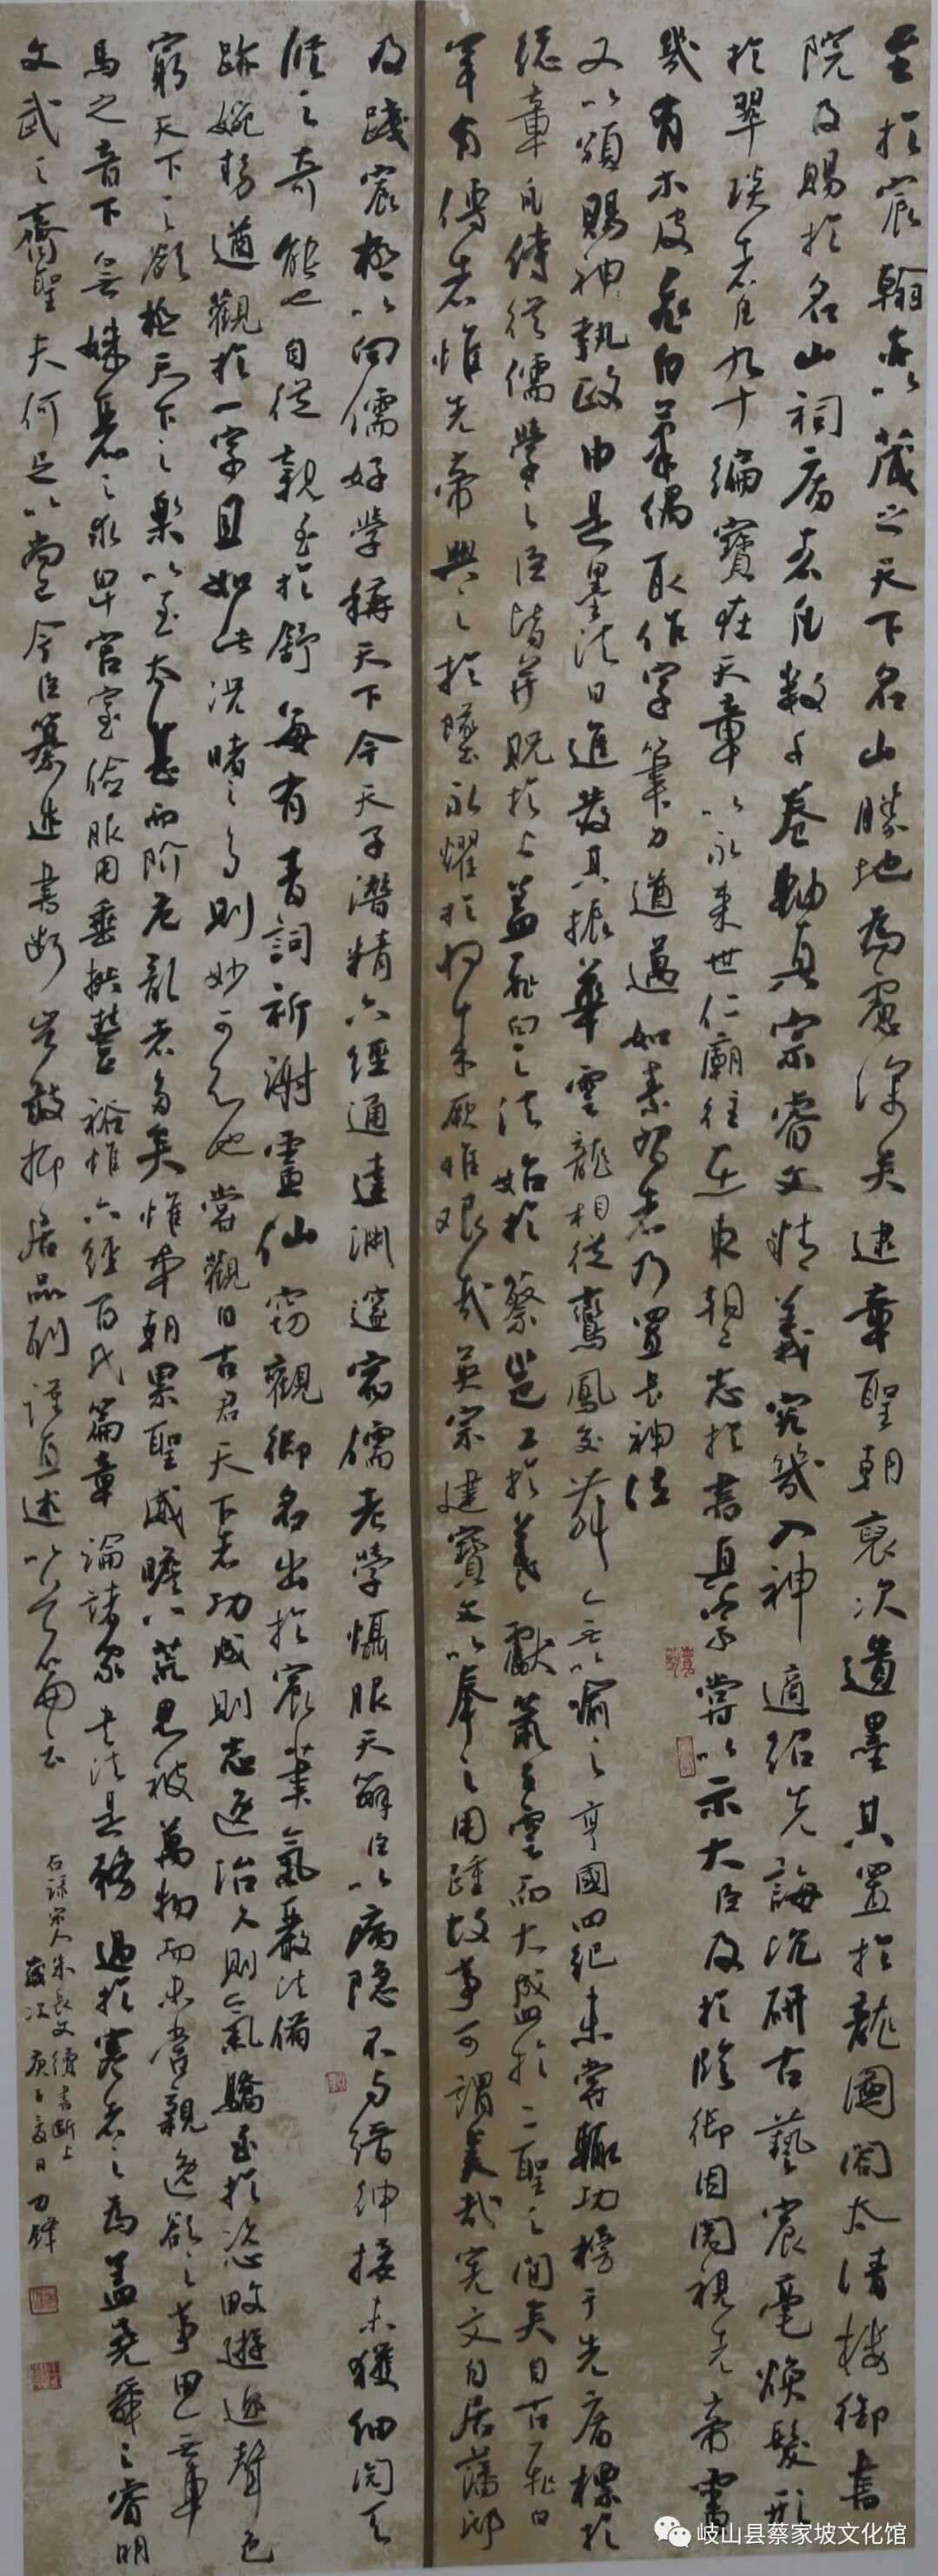 至於宸翰亦以藏之天下名山勝地為慮深矣逮章聖朝裒次遺墨其置於龍圖閣太清樓御書
院及賜於名山祠廟者凡數千卷軸真宗睿文精義究幾入神適紹先誨沉研古藝宸毫煥發形
於翠琰者凡九十編寶在天章以永來世仁廟往在東朝志於書學嘗以示大臣及於臨御因閱視先帝書
幾有木皮飛白筆偶取作字筆力遒邁如素習者乃置長神法
又以頒賜神執政由是墨法日進發其振華雲龍相從鸞鳳交舞以喻之享國四紀未嘗輟功榜于先廟標於
延章凡侍從儒學之臣皆并貺於上蓋飛白之法始於蔡邕工於羲獻蕭子雲而大盛於二聖之間矣自古飛白
罕有傳者惟先帝興之於墜永耀於將來厥惟艱哉英宗建寶文以奉之用踵故事可謂美哉憲文自居藩邸
及踐宸極以向儒好學稱天下今天子潛精六經通達淵邃宿儒老學懾服天解臣以病隱不与縉紳接未獲細閱天
縱之奇能也自從親至於舒每有青詞祈謝靈仙竊觀御名出於宸筆氣嚴法備
跡婉勢遒觀於一字且如此況睹之多則妙可知也嘗觀自古君天下者功成則志逸治久則氣驕至於恣畋遊近聲色
窮天下之欲極天下之樂以至太甚而階危亂者多矣惟本朝累聖威瞻八荒恩被萬物而未嘗親逸欲之事思無車
馬之音下無姝麗之求卑宮室儉服用垂拱豐裕惟六經百氏篇章論諸家書法是務過於寒士之為蓋堯舜之睿明
文武之齊聖夫何足以尚已今臣纂述書斷豈敢抑居品列謹直述以冠篇云
右錄宋人朱長文續書斷上
歲次庚子夏月
岐山县蔡家坡文化馆